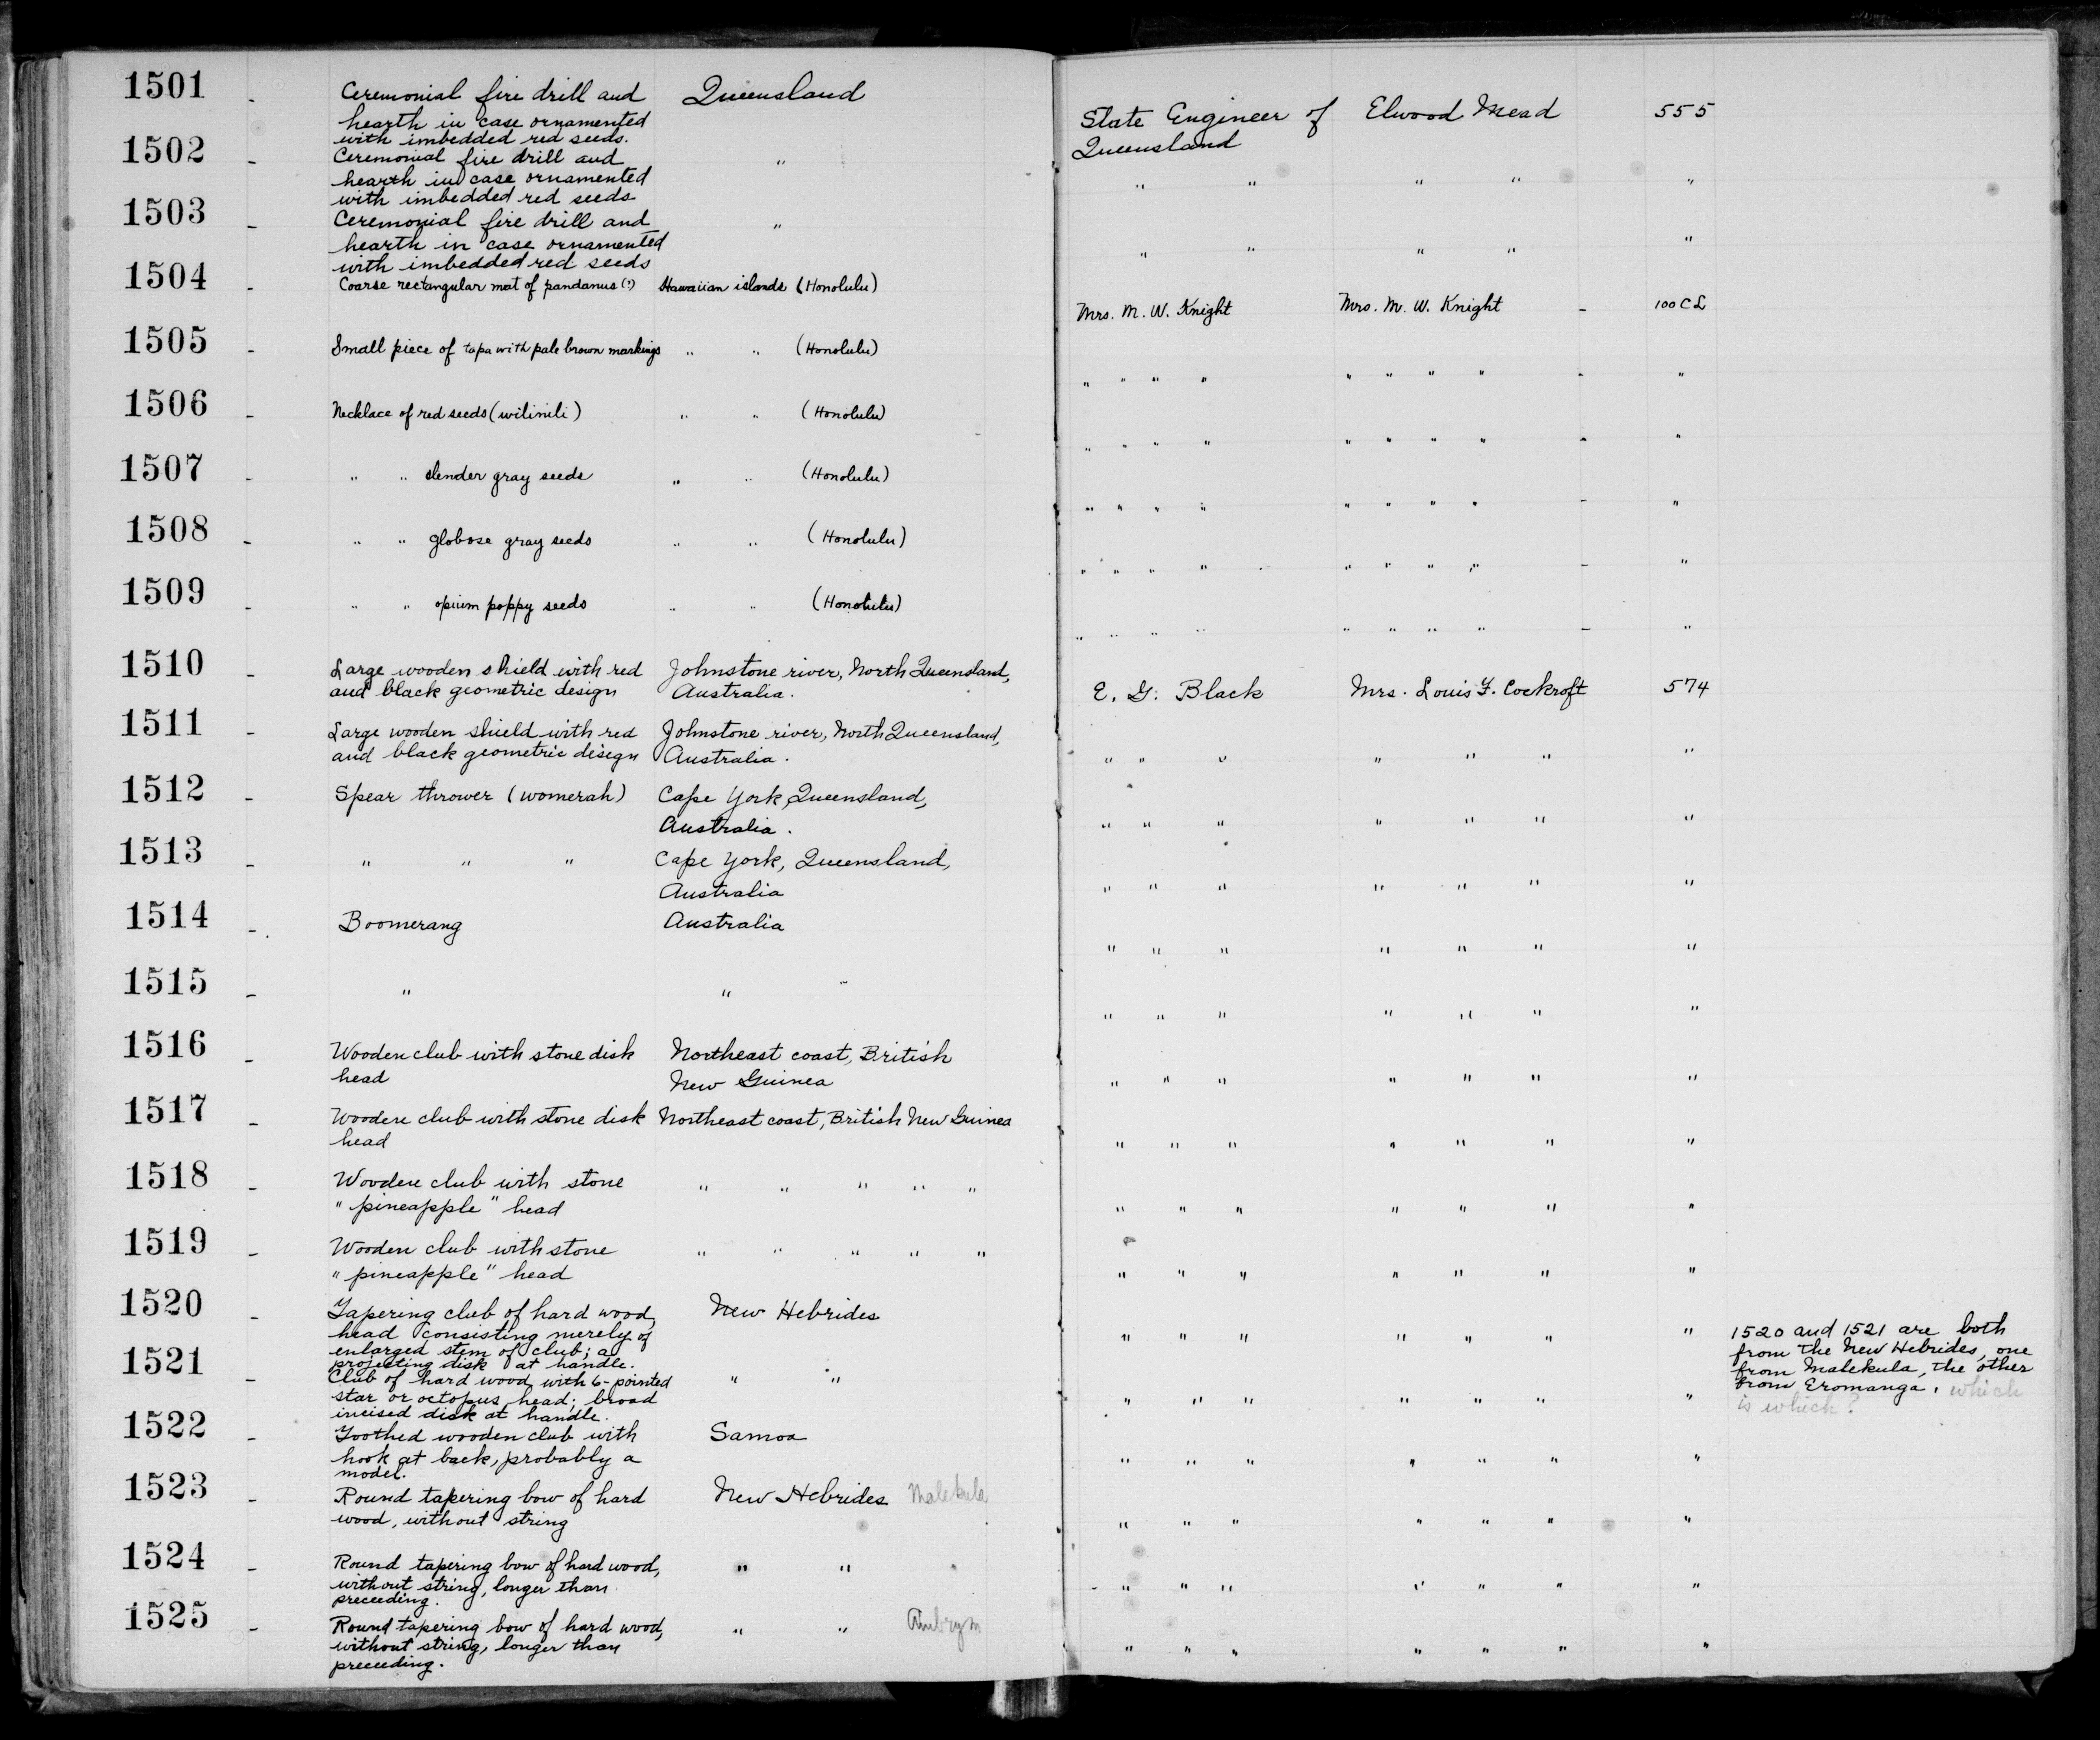 1501 - Ceremonial fire drill and Queensland State Engineer of Elwood Mead 555
hearth in case ornamented Queensland
with imbedded red seeds.
1502 - Ceremonial fire drill and " " " " " "
hearth in case ornamented
with imbedded red seeds
1503 - Ceremonial fire drill and " " " " " "
hearth in case ornamented
with imbedded red seeds
1504 - Coarse rectangular mat of pandanus (?) Hawaiian islands (Honolulu) Mrs. M. W. Knight Mrs. M. W. Knight - 100 CL
1505 - Small piece of tapa with pale brown markings " " (Honolulu) " " " " " " " " - "
1506 - Necklace of red seeds (wilinili) " " (Honolulu) " " " " " " " " - "
1507 - " " slender gray seeds " " (Honolulu) " " " " " " " " - "
1508 - " " globose gray seeds " " (Honolulu) " " " " " " " " - "
1509 - " " opium poppy seeds " " (Honolulu) " " " " " " " " - "
1510 - Large wooden shield with red Johnstone river, North Queensland, E. G. Black Mrs. Louis F. Cockroft 574
and black geometric design Australia.
1511 - Large wooden shield with red Johnstone river, North Queensland, " " " " " " "
and black geometric design Australia.
1512 - Spear thrower (womerah) Cape York, Queensland, " " " " " " "
Australia.
1513 - " " " Cape York, Queensland, " " " " " " "
Australia
1514 - Boomerang Australia " " " " " " "
1515 - " " " " " " " " "
1516 - Wooden club with stone disk Northeast coast, British " " " " " " "
head New Guinea
1517 - Wooden club with stone disk Northeast coast, British New Guinea " " " " " " "
head
1518 - Wooden club with stone " " " " " " " " " " " "
"pineapple" head
1519 - Wooden club with stone " " " " " " " " " " " "
"pineapple" head
1520 - Tapering club of hard wood, New Hebrides " " " " " " " 1520 and 1521 are both
head consisting merely of from the New Hebrides, one
enlarged stem of club; a from Malekula, the other
projecting disk at handle. from Eromanga, which
is which?
1521 - Club of hard wood with 6-pointed " " " " " " " " "
star or octopus head; broad
incised disk at handle.
1522 - Toothed wooden club with Samoa " " " " " " "
hook at back, probably a
model.
1523 - Round tapering bow of hard New Hebrides Malekula " " " " " " "
wood, without string
1524 - Round tapering bow of hard wood, " " " " " " " " "
without string, longer than
preceeding.
1525 - Round tapering bow of hard wood, " " Ambrym " " " " " " "
without string, longer than
preceeding.